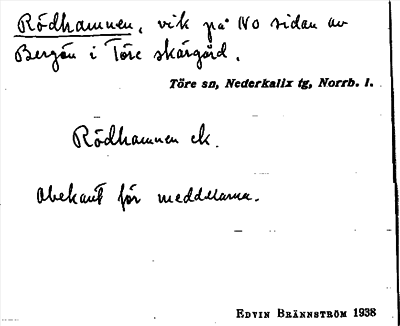 Rödhamnen, vik på NO sidan av
Bergön i Töre skärgård.
Töre sn, Nederkalix tg, Norrb. l.
Rödhamnen ek.
Obekant för meddelarna.
EDVIN BRÄNNSTRÖM 1938